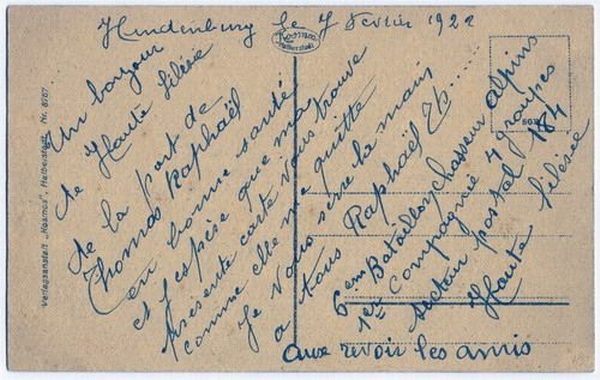 Hindenburg le 7 Fevrier 1922
Kosmos
Halberstadt
Un bonjour
de Haute Silésie
de la part de
Thomas Raphaël
en bonne santé
et j'espère que ma
présente carte vous trouve
comme elle me quitte
Je vous serre la main
a tous Raphaël Th......
6em Bataillon chasseur alpins
1er Compagnie 4 groupes
secteur postal 184
Haute Silésie
aux revoir les amis
Verlagsanstalt „Kosmos", Halberstadt, Nr. 8767